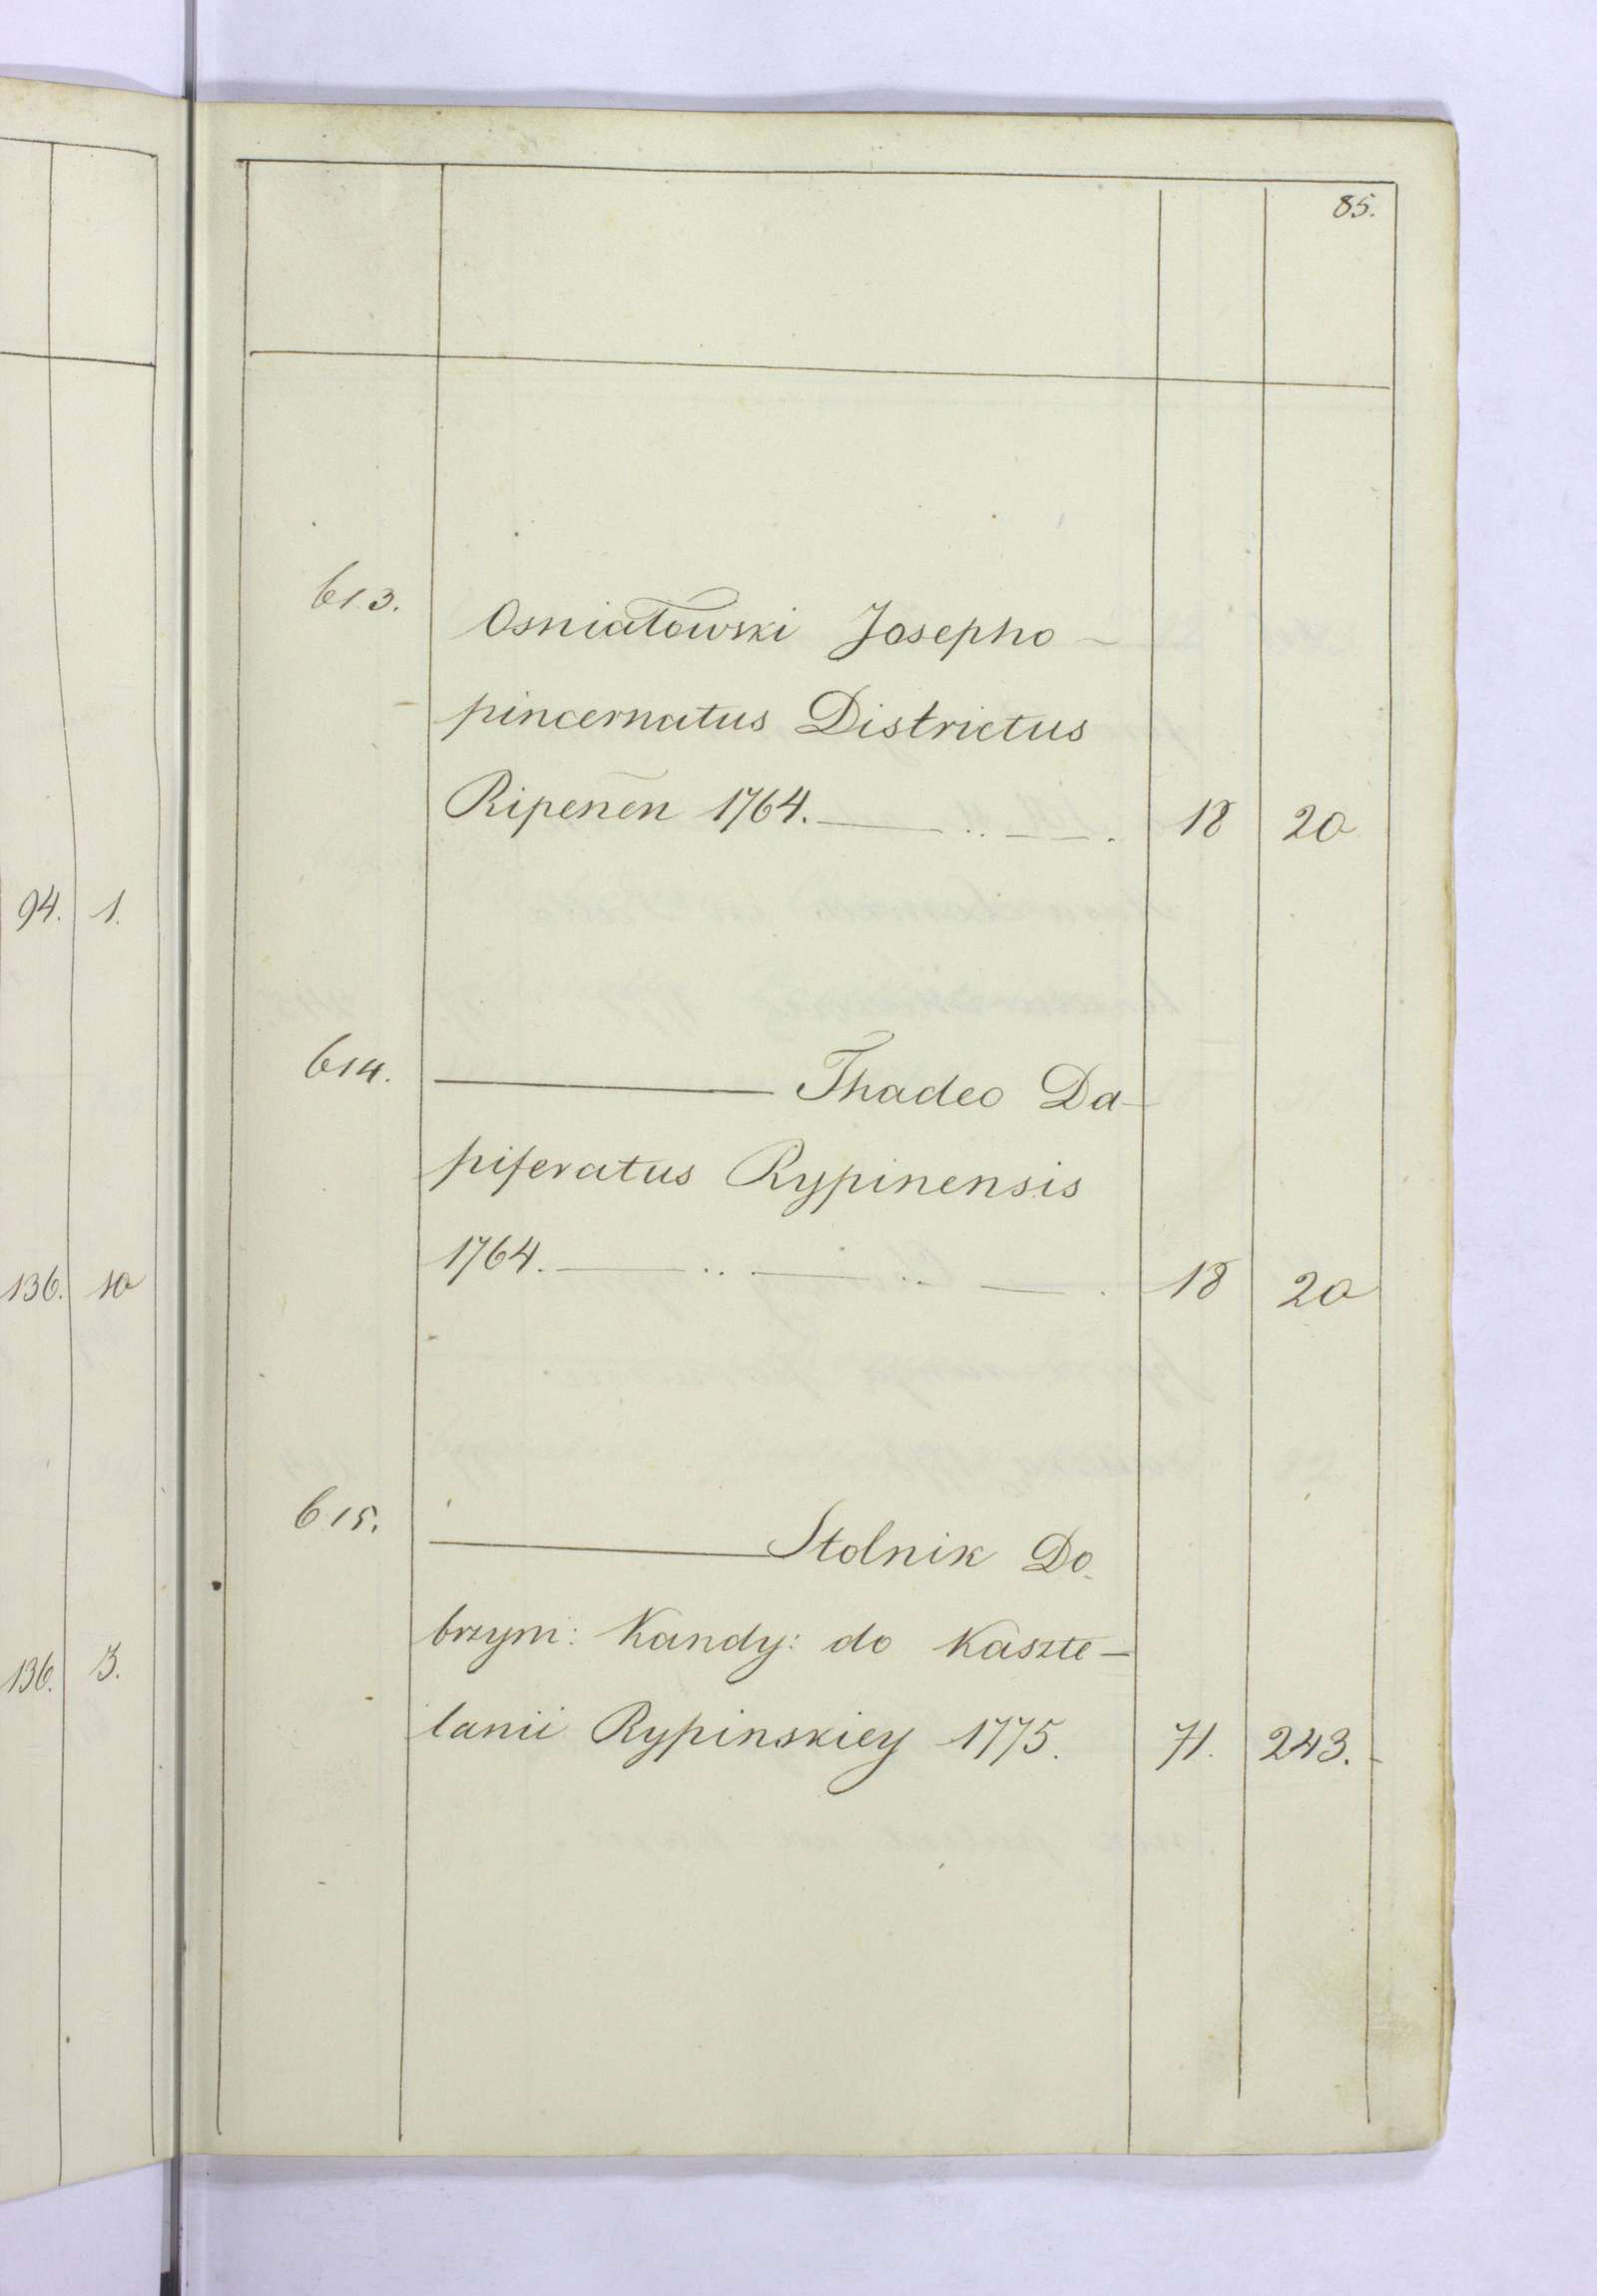 85.
613. Osniatowski Josepho –
pincernatus Districtus
Ripenēn 1764. —— .. —— . 18 20
614. ———— Thadeo Da-
piferatus Rypinensis
1764. —— .. —— .. —— . 18 20
615. ———— Stolnik Do-
brzym: Kandy: do Kaszte-
lanii Rypinskiey 1775. 71. 243.
94. 1.
136. 10
136. 3.